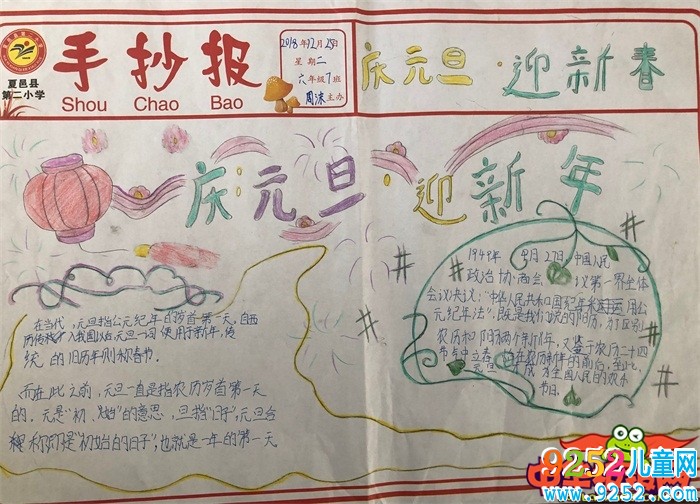 夏邑县
第二小学
手抄报
Shou Chao Bao
2018年12月25日
星期二
六年级7班
周沫主办
庆元旦·迎新春
庆元旦·迎新年
在当代,元旦指公元纪年的岁首第一天。自西
历传入我国以后,元旦一词便用于新年,传
统的旧历年则称春节。
而在此之前,元旦一直是指农历岁首第一天
的。元是"初、始"的意思,旦指"日子",元旦合
称即是"初始的日子",也就是一年的第一天
1949年9月27日,中国人民
政治协商会议第一界全体
会议决议:"中华人民共和国纪年采用公
元纪年法",既是我们说的阳历,为了区别
农历和阳历两个新年,又鉴于农历二十四
节气中立春在农历新年的前后,至此,
元旦成为全国人民的欢乐
节日。
9252儿童网
www.9252.com